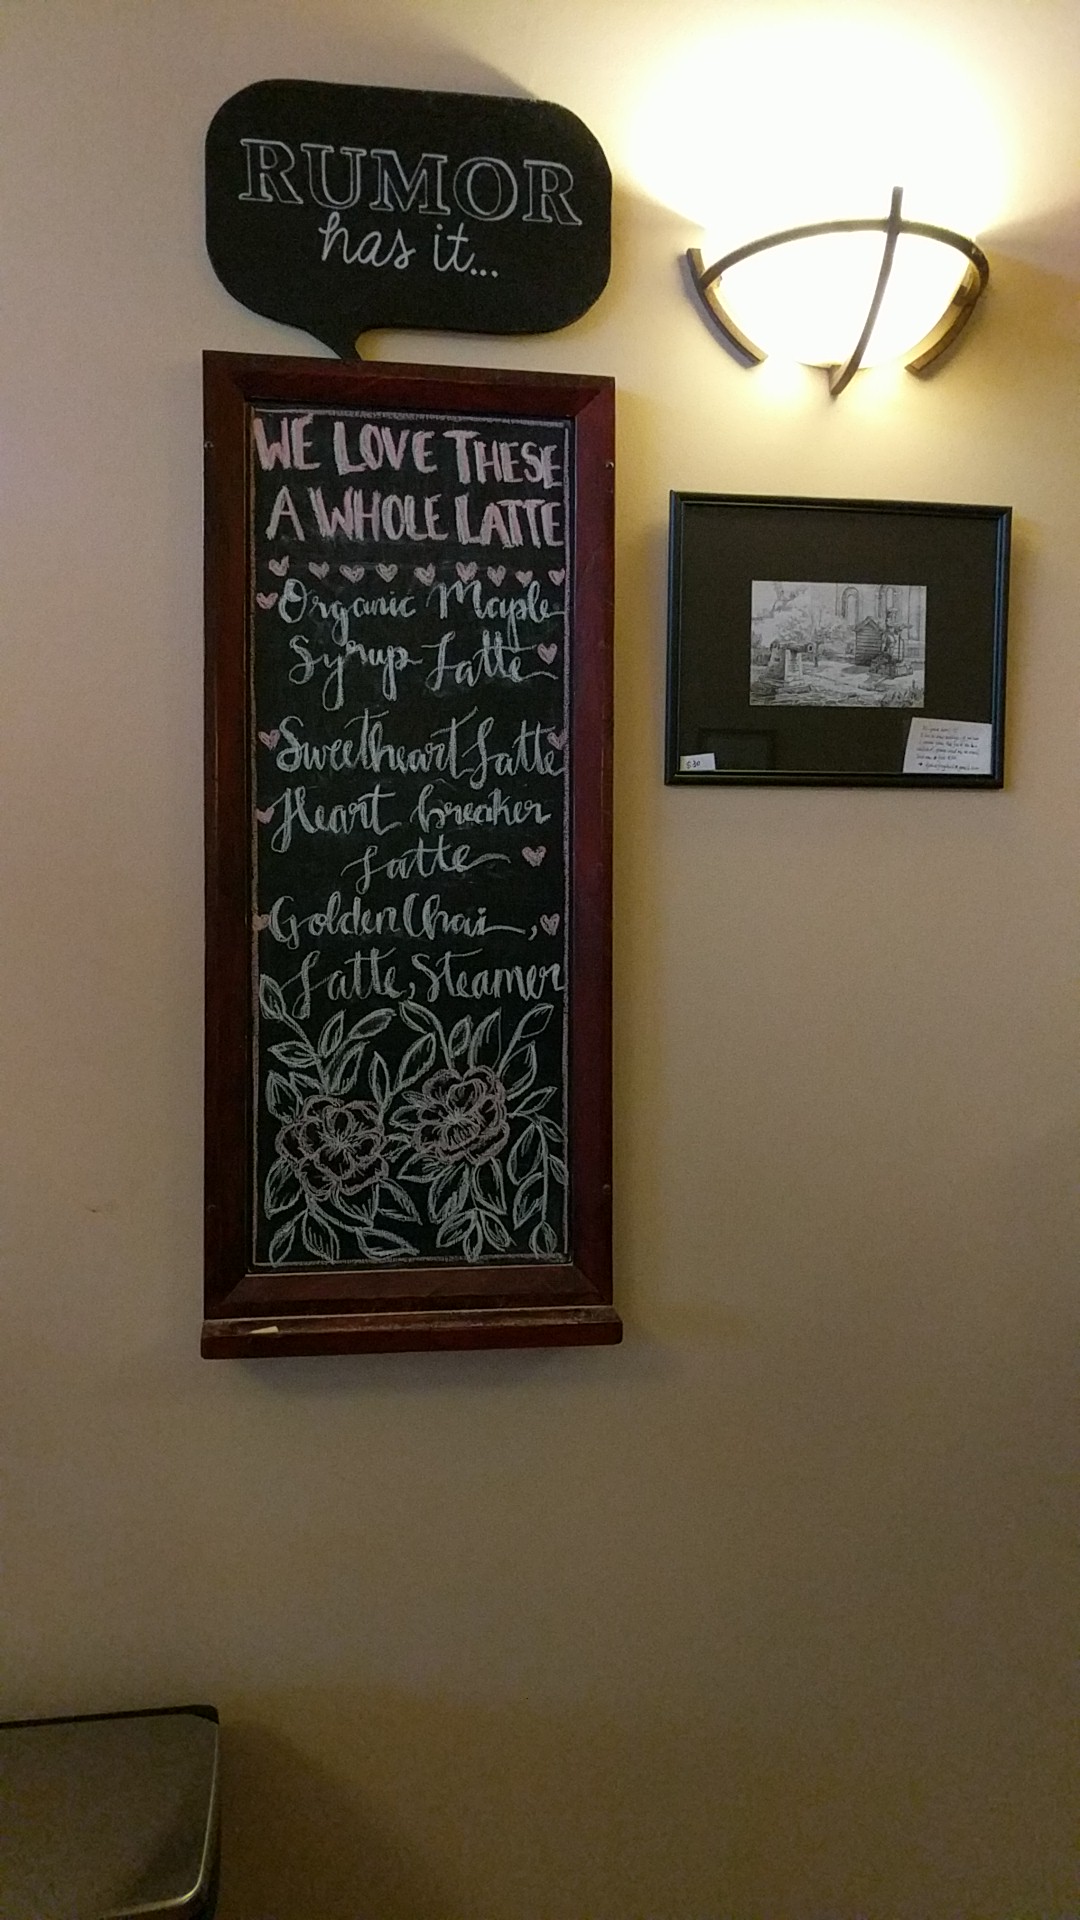 RUMOR
has it...
WE LOVE THESE
A WHOLE LATTE
Organic Maple
Syrup Latte
Sweetheart Latte
Heart breaker
Latte
Golden Chai,
Latte, Steamer